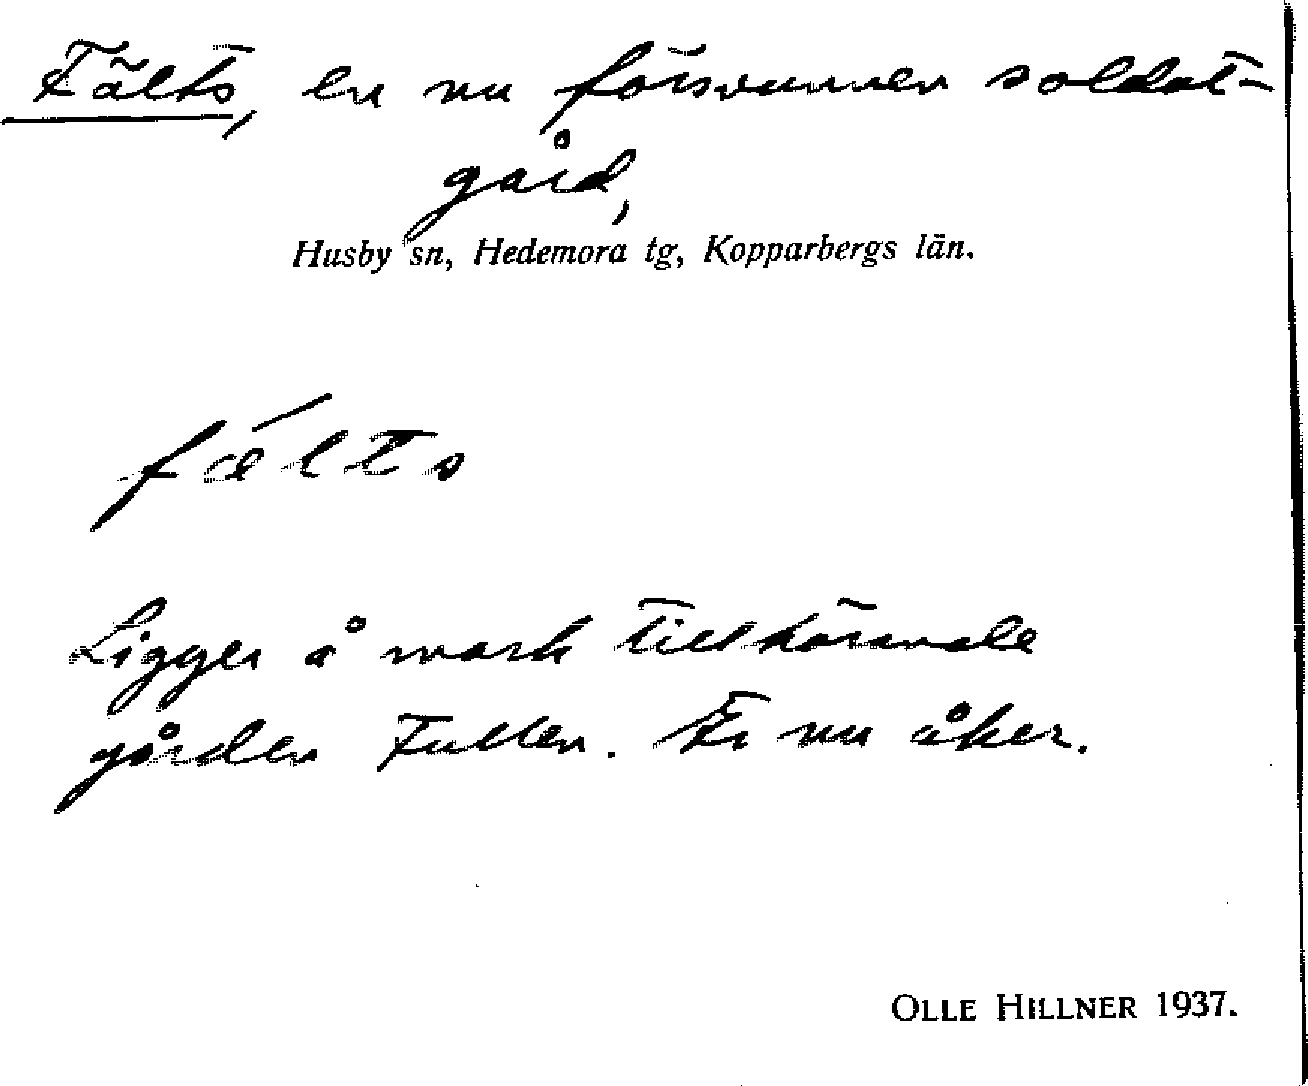 Fälts, en nu försvunnen soldat-
gård,
Husby sn, Hedemora tg, Kopparbergs län.
fǽlts
Ligger å mark tillhörande
gården Fullen. Är nu åker.
OLLE HILLNER 1937.